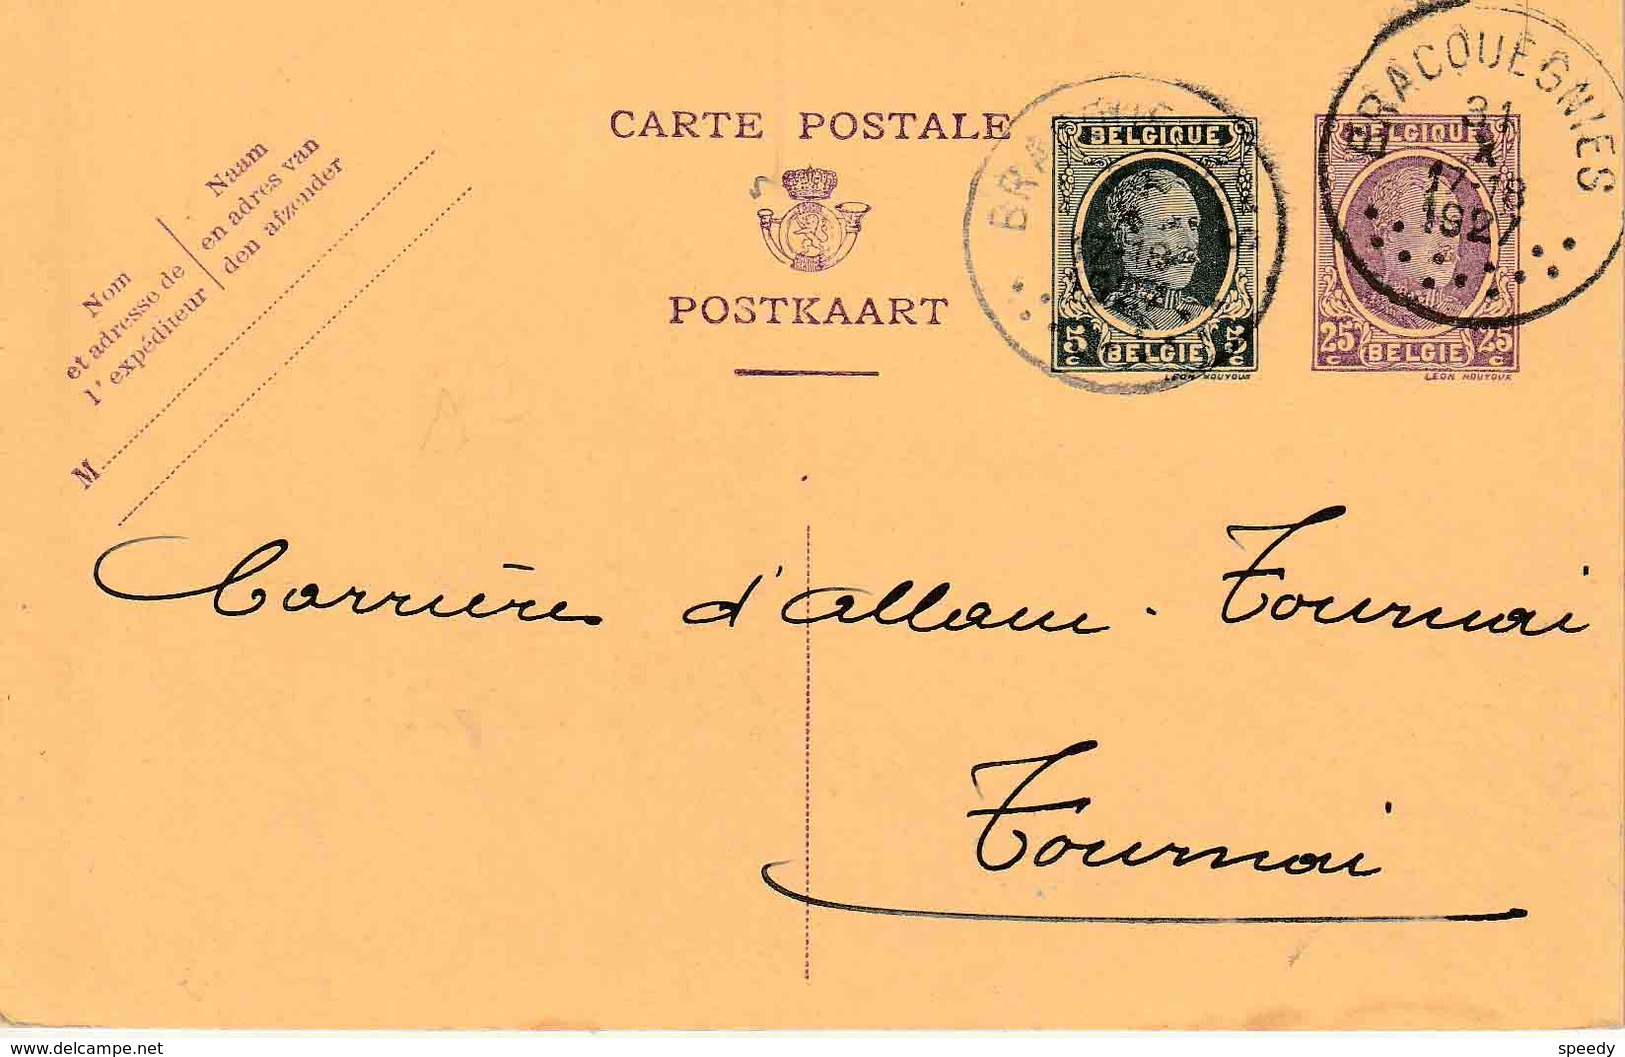 CARTE POSTALE
POSTKAART
Nom
et adresse de
l'expéditeur
Naam
en adres van
den afzender
M
BELGIQUE
5c 5c
BELGIE
LEON HOUYOUX
BELGIQUE
25c 25c
BELGIE
LEON HOUYOUX
BRACQUEGNIES
31
X
17-18
1927
Carrières d'Allain-Tournai
Tournai
www.delcampe.net
speedy